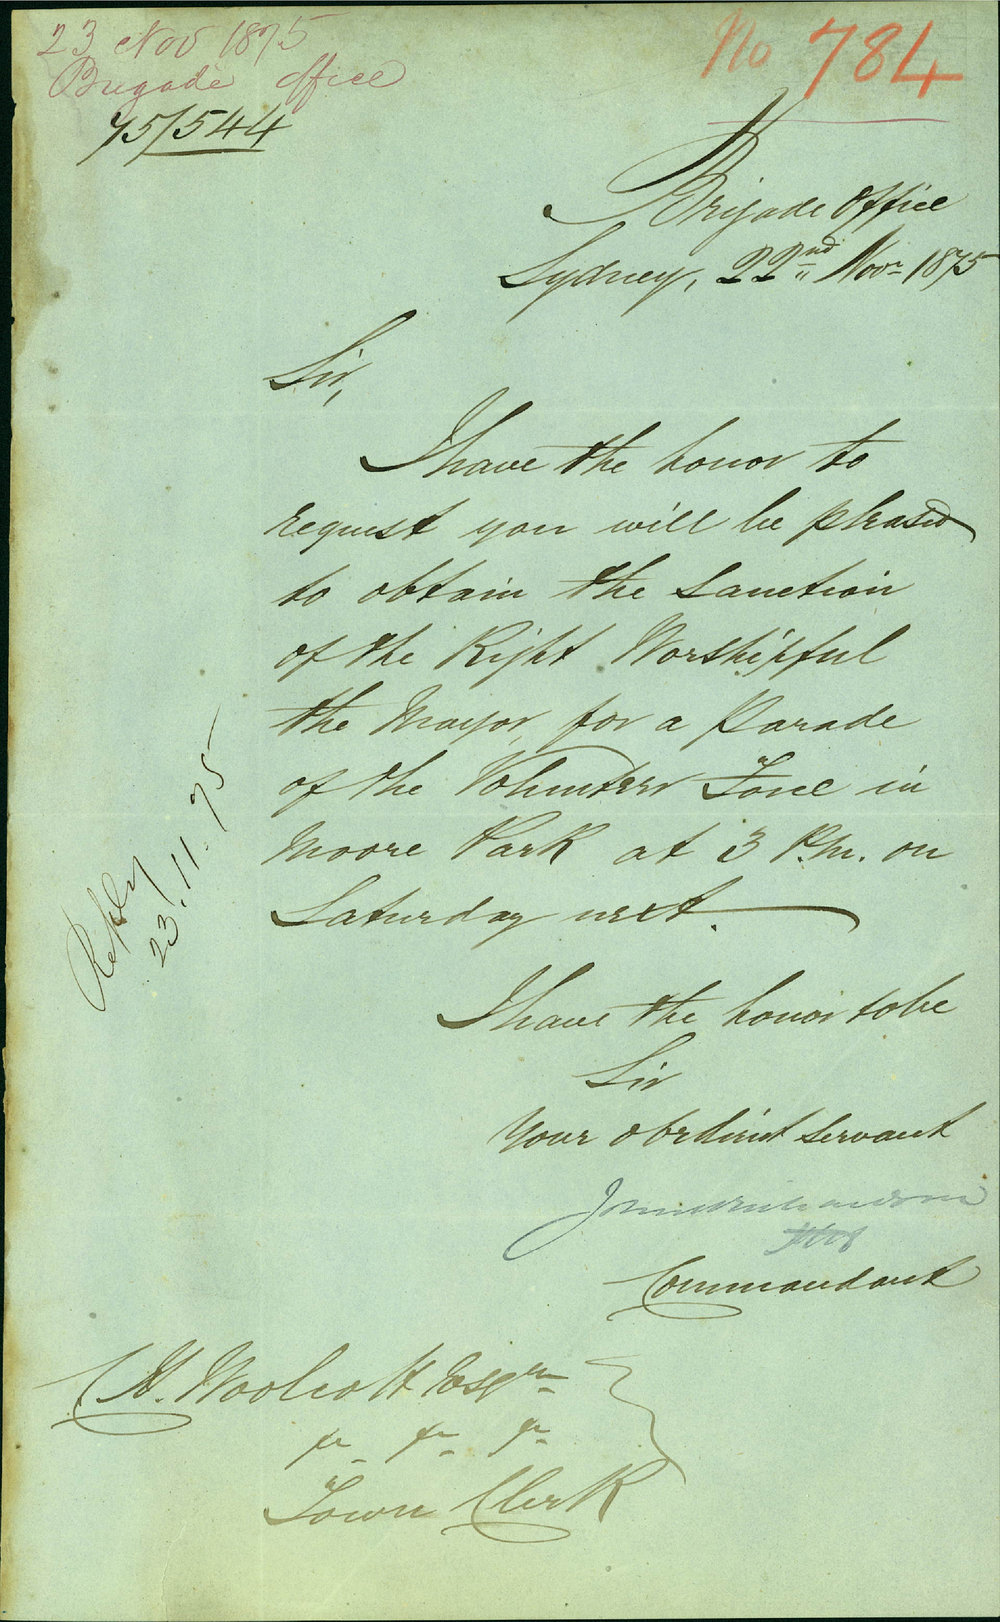 23 Nov 1875
Brigade Office
75/544
No 784
Brigade Office
Sydney, 22nd Novr 1875
Sir,
I have the honor to
request you will be pleased
to obtain the sanction
of the Right Worshipful
the Mayor, for a Parade
of the Volunteer Force in
Moore Park at 3 P.m. on
Saturday next.
I have the honor to be
Sir
Your obedient servant
Commandant
Reply
23.11.75
C H. Woolcott Esqre
Town Clerk